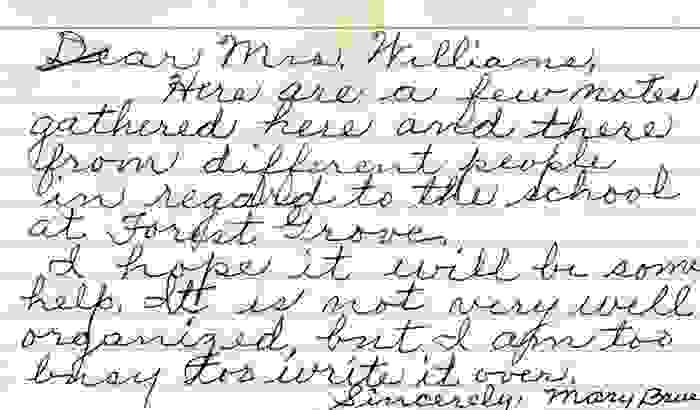 Dear Mrs. Williams,
Here are a few notes
gathered here and there
from different people
in regard to the school
at Forest Grove.
I hope it will be some
help. It is not very well
organized, but I am too
busy to write it over.
Sincerely, Mary